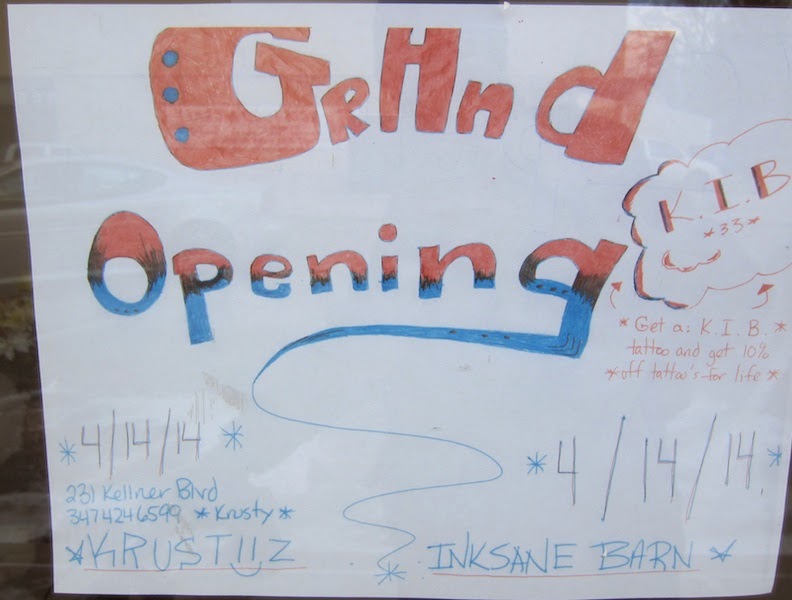 GrAnd
Opening
K.I.B
*33*
* Get a: K.I.B. *
tattoo and get 10%
* off tattoo's for life *
* 4/14/14 *
231 Kellner Blvd
3474246599 * Krusty *
* KRUSTiiZ
* 4/14/14. *
INKSANE BARN *